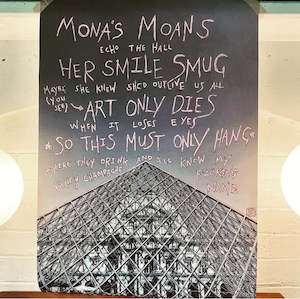 MONA'S MOANS
ECHO THE HALL
HER SMILE SMUG
MAYBE SHE KNEW SHE'D OUTLIVE US ALL
(YOU SEE) → ART ONLY DIES
WHEN IT LOSES EYES
*SO THIS MUST ONLY HANG*
WHERE THEY DRINK AND ALL KNEW MY
CHAMPAGNE